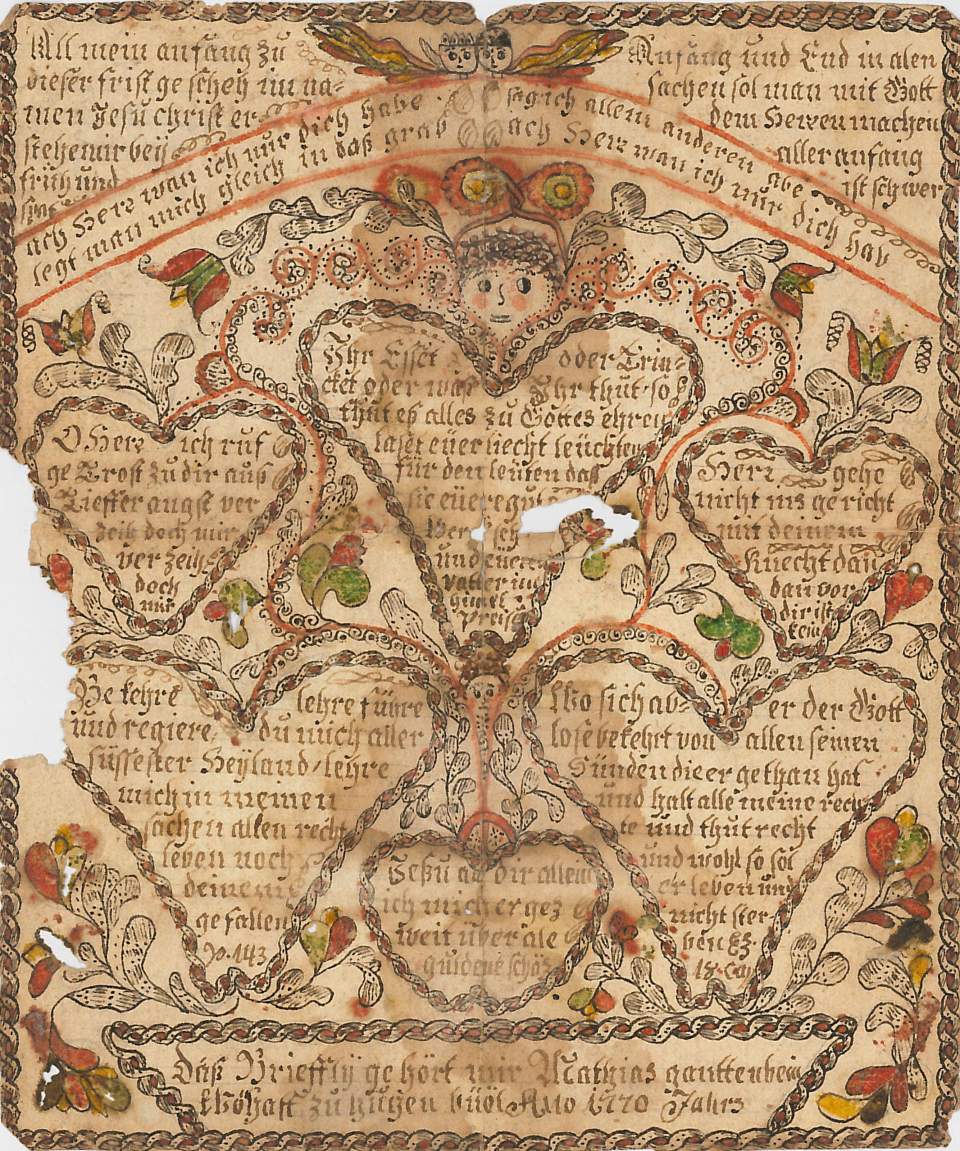 All mein anfang zu
dieser frist ge scheh im na-
men Jesu christ er
stehe mir beÿ
früh und
spat
Anfang und End in alen
sachen sol man mit Gott
dem Herren machen
aller anfang
ist schwer
ach Herr wan ich nur dich habe sag ich allem anderen abe
legt man mich gleich in daß grab ach Herr wan ich nur dich hab
Ihr Esset oder Trin-
cket oder was Ihr thut so
thut es alles zu Gottes ehren
laset euer liecht leüchten
für den leuten das
sie eüere gut
und eüern
vatter im
himel
Preiß
O Herr ich ruf
ge Trost zu dir auß
Tieffer angst ver
zeih doch mir
ver zeih
doch
mir
Herr gehe
nicht ins gericht
mit deinem
Knecht dan
dan vor
dir ist
kein
Be kehre lehre führe
und regiere, du mich aller
süssester Heÿland / lehre
mich in meinen
sachen allen recht
leben noch
deinem
ge fallen
P. 143
Wo sich ab- er der Gott
lose bekehrt von allen seinen
Sünden die er gethan hat
und halt alle meine rech
te und thut recht
und wohl so sol
er leben und
nicht ster-
ben Ez.
18. Cap
Jesu an dir allein
ich mich ergez
weit über ale
guldene schäz
Daß Brieffly ge hört mir Mathias gauttenbein
Wohaft zu hugen büöl Ano 1770 Jahrs